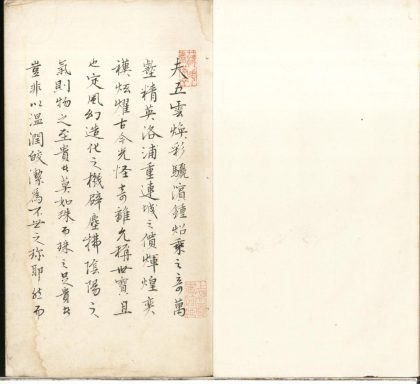 夫五雲煥彩驪濱鍾炤乘之奇萬
壑精英洛浦重連城之價煇煌奕
禩炫耀古今光怪奇離允稱世寶且
也定風幻造化之機辟塵拂陰陽之
氣則物之至貴者莫如珠而珠之足貴者
豈非以溫潤皎潔為不世之珎耶然而